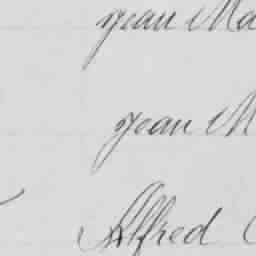 Jean Ma
Jean M
Alfred